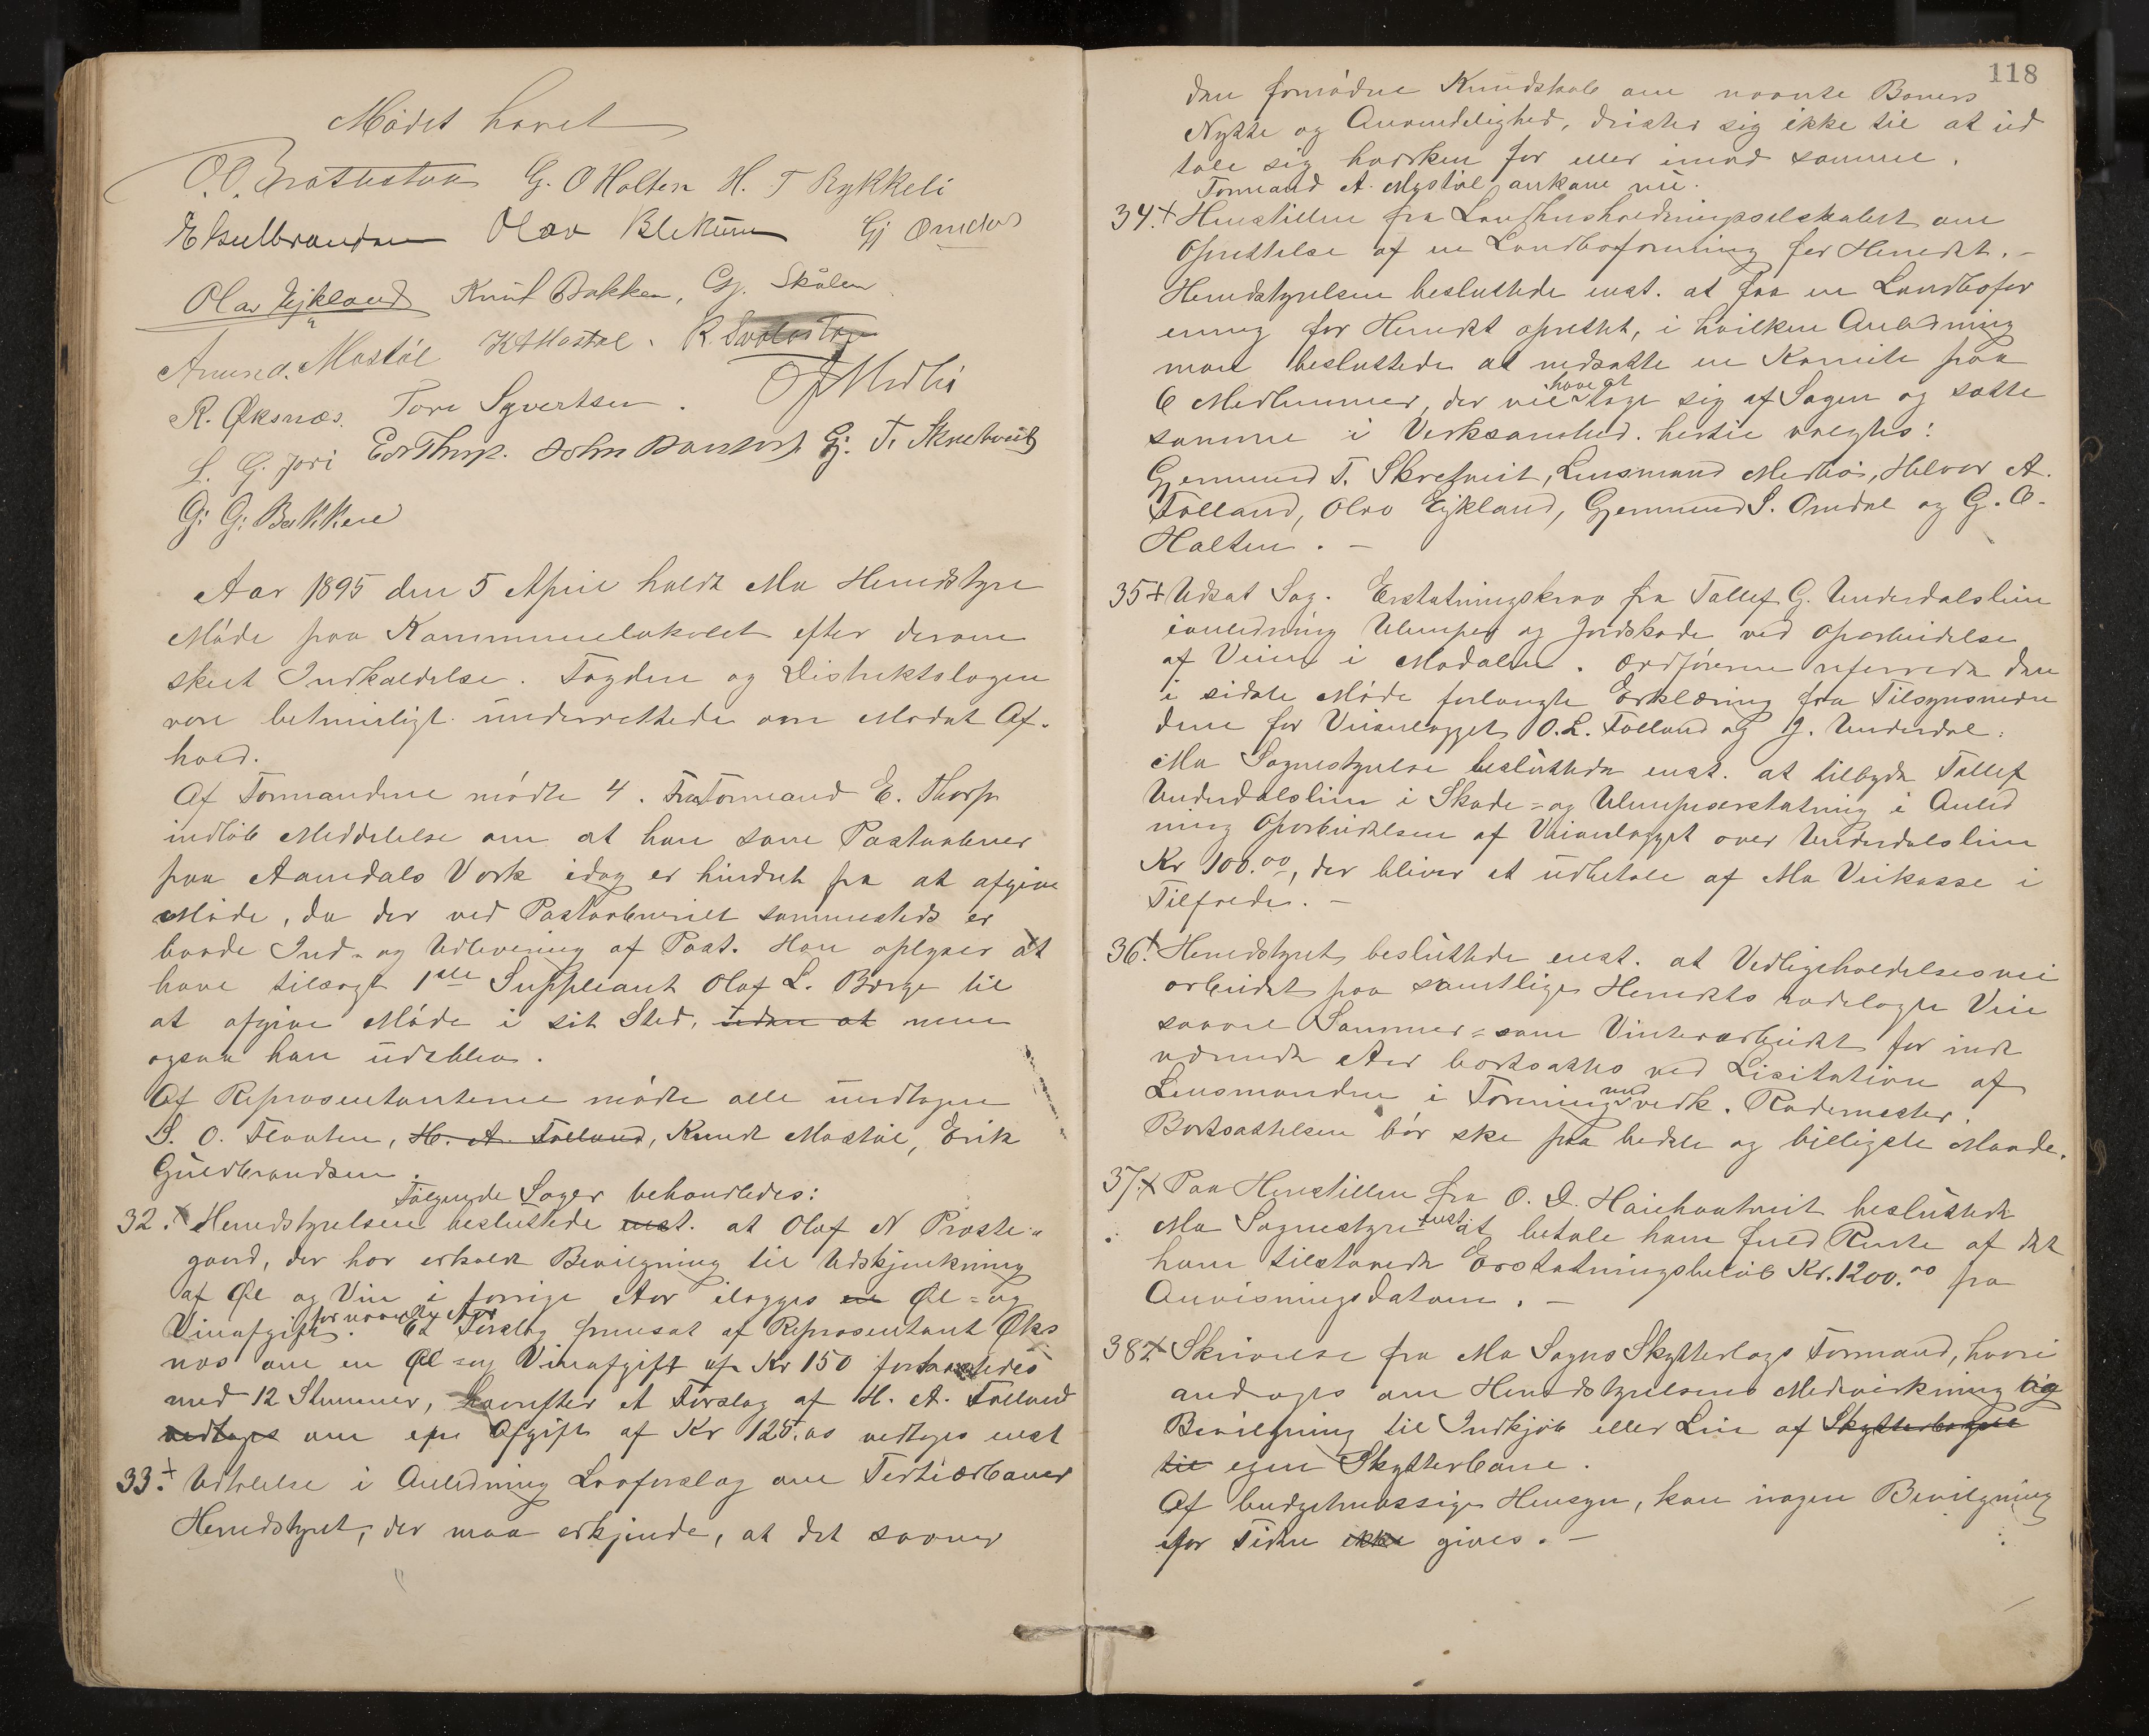 Mødet hævet
G. O Holten H. T Rykkeli
EGulbrandsen Olav Blekum Gj Omdal
Olav Eikland Knut Bakken, Gj. Skålen
Amund. Mostøl KAMostøl. R.
R. Øksnæs. Tore Syvertsen. OJMidbø
L. G. Jori EdvThorp. John Gj. T. Skrebveit
G: G: Bakken
Aar 1895 den 5 April holdt Mo Herredstyre
Møde paa Kommunelokalet efter derom
skeet Indkaldelse. Fogden og Distriktslægen
vare betimeligt underrettede om Mødets Af-
hold.
Af Formændene mødte 4. Fra Formand E. Thorp
indløb Meddelelse om at han som Postaabner
paa Aamdals Værk idag er hindret fra at afgive
Møde, da der ved Postaabneriet sammesteds er
baade Ind- og Udlevering af Post. Han oplyser at
have tilsagt 1ste Suppleant Olaf L. Børge til
at afgive Møde i sit Sted, uden at men
ogsaa han udeblev.
Af Repræsentanterne mødte alle undtagen
S. O. Flaaten, H. A. Folland, Knudt Mostøl, Erik
Guldbrandsen.
Følgende Sager behandledes:
32. Herredstyrelsen besluttede enst. at Olaf N Præste-
gaard, der har erholdt Bevilgning til Udskjænkning
af Øl og Vin i forrige Aar ilægges en Øl- og
Vinafgift for nævnte Aar. Et Forslag fremsat af Repræsentant Øks
næs om en Øl- og Vinafgift af Kr 150 forkastedes
med 12 Stemmer, hvorefter et Forslag af H. A. Folland
vedtoges om en Afgift af Kr 125.00 vedtoges enst
33. Udtalelse i Anledning Lovforslag om Tertiærbaner
Herredstyret, der maa erkjende, at det savner
118
den fornødne Kundskab om nævnte Baners
Nytte og Anvendelighed, drister sig ikke til at ud
tale sig hverken for eller imod samme.
Formand A. Mostøl ankom nu.
34. Henstillen fra Landhusholdningsselskabet om
Oprettelse af en Landboforening for Herredet. -
Herredstyrelsen besluttede enst. at faa en Landbofor
ening for Herredet oprettet, i hvilken Anledning
man besluttede at nedsætte en Komite paa
6 Medlemmer, der vil have at tage sig af Sagen og sætte
samme i Verksomhed. hertil valgtes:
Gjermund T. Skrefveit, Lensmand Midbø, Halvor A.
Folland, Olav Eikland, Gjermund S. Omdal og G. O.
Holten. -
35 Udsat Sag. Erstatningskrav fra Tallef G. Underdalslien
ianledning Ulemper og Jordskade ved Oparbeidelse
af Veien i Modalen. Ordføreren refererede den
i sidste Møde forlangte Erklæring fra Tilsynsmæn
dene for Veianlægget O. L. Folland og J. Underdal.
Mo Sognestyrelse besluttede enst. at tilbyde Tallef
Underdalslien i Skade- og Ulempeserstatning i Anled
ning Oparbeidelsen af Veianlægget over Underdalslien
Kr 100.00, der bliver at udbetale af Mo Veikasse i
Tilfælde. -
36. Herredstyret besluttede enst. at Vedligeholdelsesvei
arbeidet paa samtlige Herredets rodelagte Veie
saavel Sommer- som Vinterarbeidet for indev
ærende Aar bortsættes ved Licitation af
Lensmanden i Forening med vedk. Rodemester.
Bortsættelsen bør ske paa bedste og billigste Maade.
37. Paa Henstillen fra O. D. besluttede
Mo Sognestyre enst. at betale ham fuld Rente af det
ham tilstaaede Erstatningsbeløb Kr. 1200.00 fra
Anvisningsdatum. -
38 Skrivelse fra Mo Sogns Skytterlags Formand, hvori
andrages om Herredstyrelsens Medvirkning og
Bevilgning til Indkjøb eller Leie af Skytterbane
til egen Skytterbane.
Af budgetmæssige Hensyn, kan ingen Bevilgning
for Tiden ikke gives. -